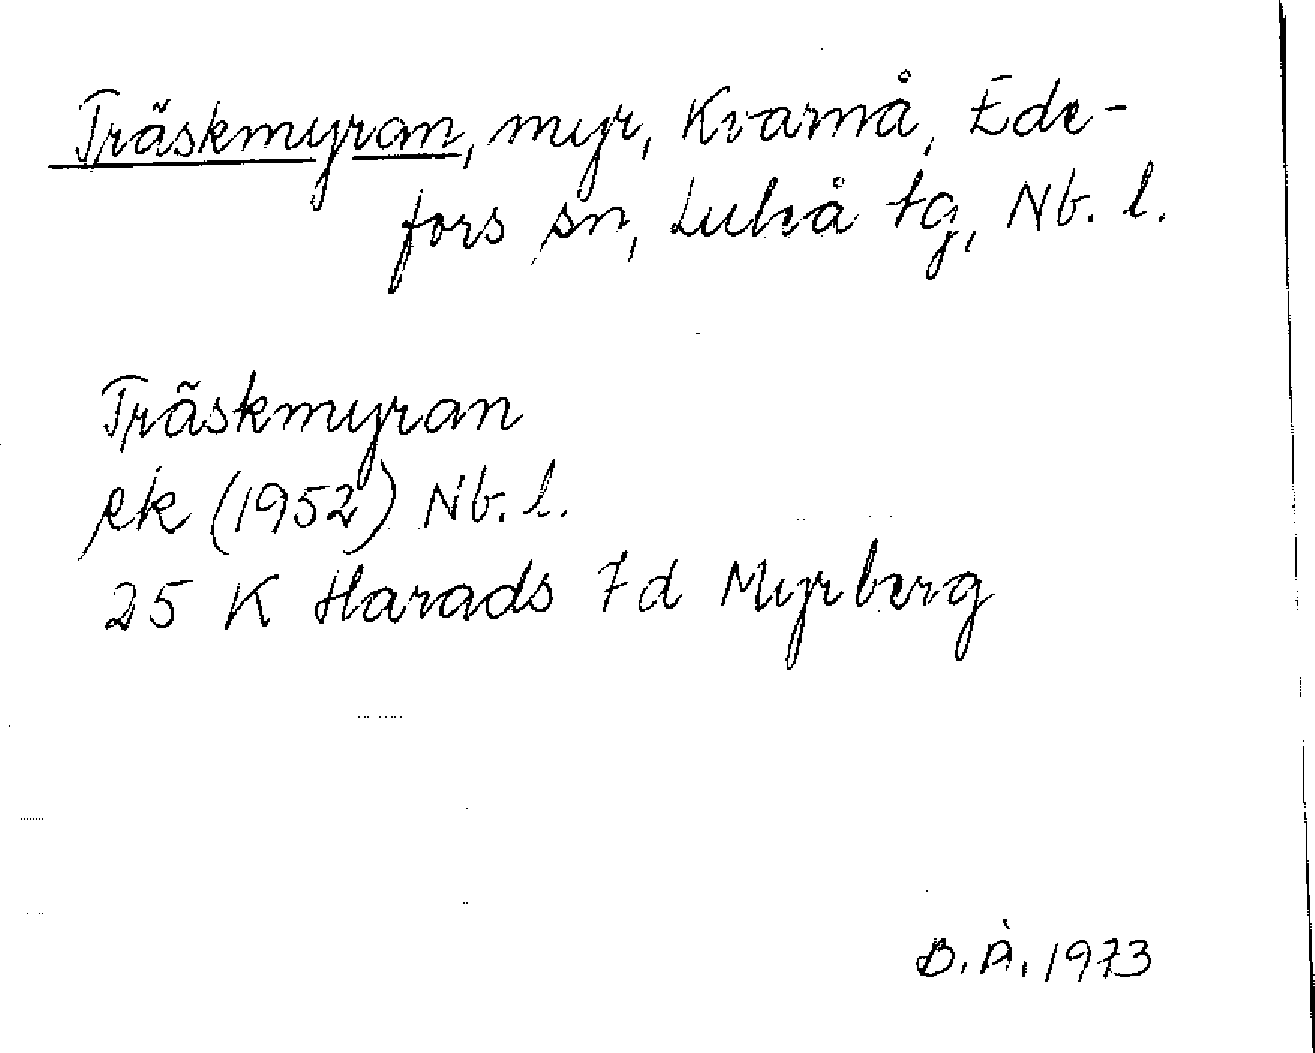 Träskmyran, myr, Kvarnå, Ede-
fors sn, Luleå tg, Nb. l.
Träskmyran
ek (1952) Nb. l.
25 K Harads 7d Myrberg
B. Å. 1973